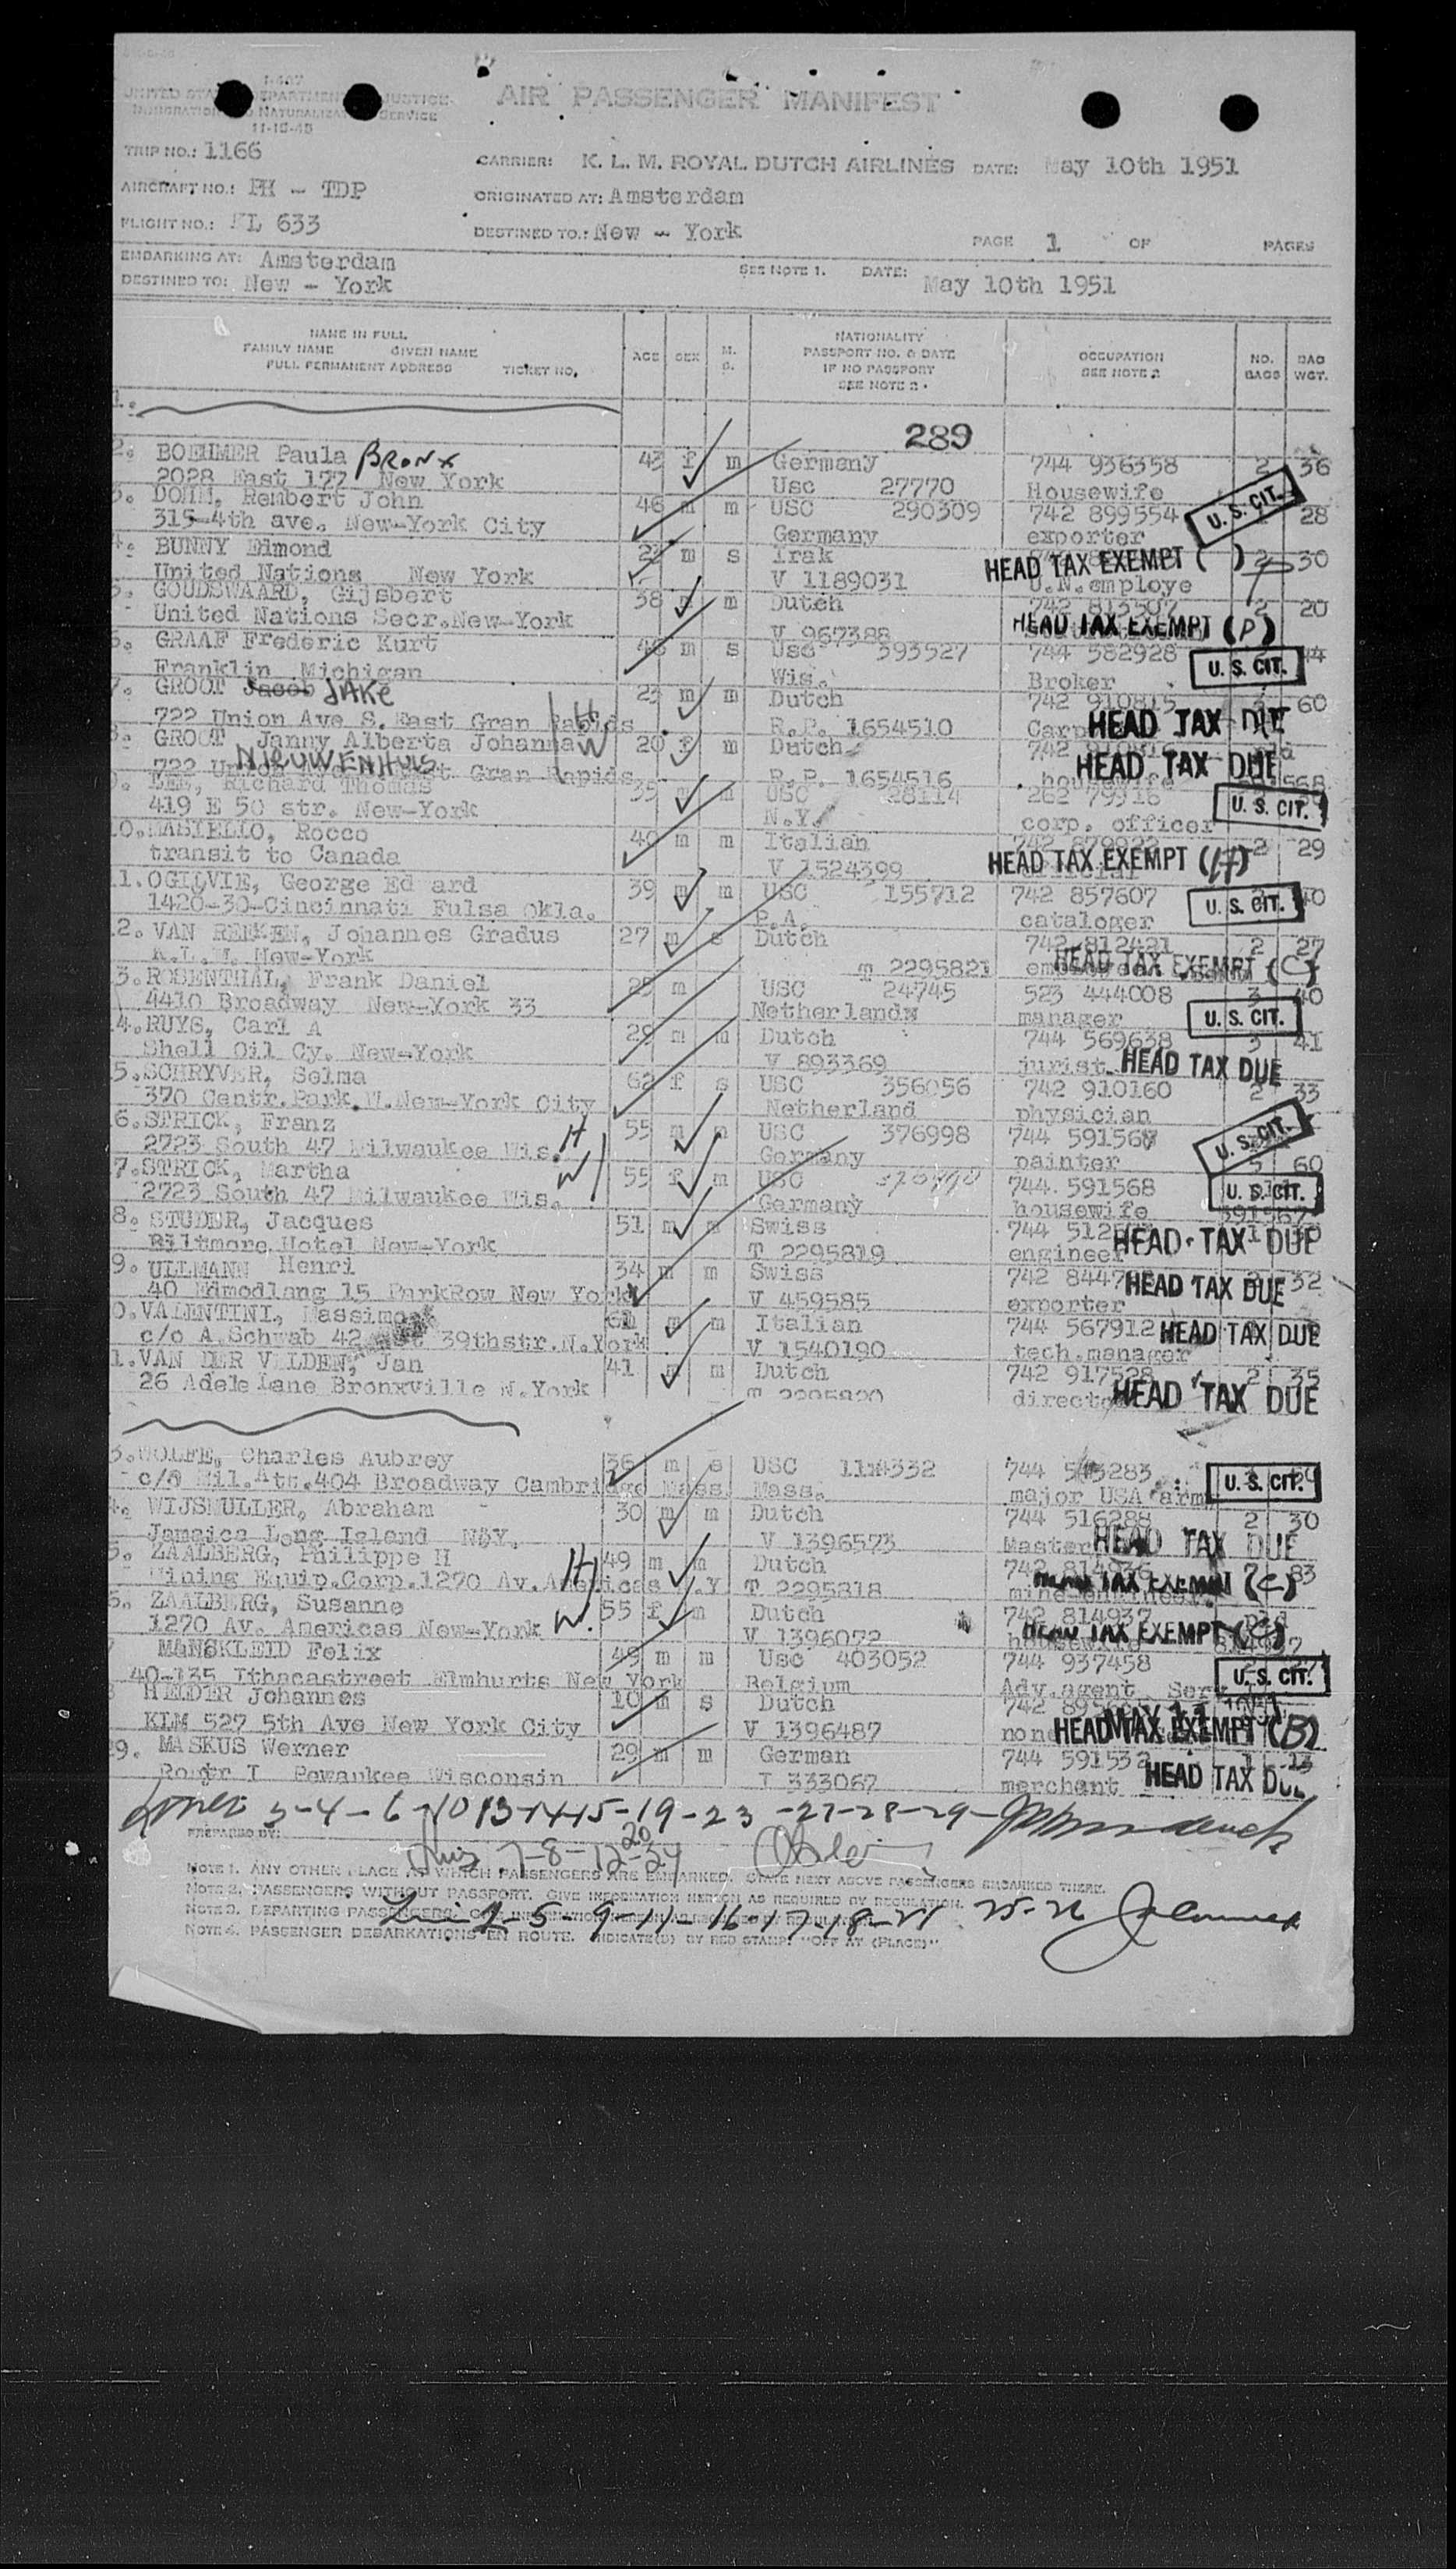 I-467
UNITED STATES DEPARTMENT OF JUSTICE
IMMIGRATION AND NATURALIZATION SERVICE
11-15-48
AIR PASSENGER MANIFEST
TRIP NO.: 1166
CARRIER: K. L. M. ROYAL DUTCH AIRLINES DATE: May 10th 1951
AIRCRAFT NO.: PH - TDP
ORIGINATED AT: Amsterdam
FLIGHT NO.: KL 633
DESTINED TO.: New - York
PAGE 1 OF PAGES
EMBARKING AT: Amsterdam
SEE NOTE 1. DATE: May 10th 1951
DESTINED TO: New - York
NAME IN FULL
FAMILY NAME GIVEN NAME
FULL PERMANENT ADDRESS TICKET NO.
AGE SEX M. S.
NATIONALITY
PASSPORT NO. & DATE
IF NO PASSPORT
SEE NOTE 2.
OCCUPATION
SEE NOTE 2
NO. BAGS
BAG WGT.
1.
289
2. BOEHMER Paula BRONX 43 f m Germany 744 936358 2 36
2028 East 177 New York Usc 27770 Housewife
3. DOHM, Rembert John 46 m m USC 290309 742 899554 28
315-4th ave. New-York City Germany exporter U. S. CIT.
4. BUNNY Edmond m s Irak 2 30
United Nations New York V 1189031 U.N.employe HEAD TAX EXEMPT ( )
5. GOUDSWAARD, Gijsbert 38 m Dutch 742 813507 2 20
United Nations Secr.New-York V 967388 HEAD TAX EXEMPT (P)
6. GRAAF Frederic Kurt m s Usc 393527 744 582928 44
Franklin Michigan Wis. Broker U. S. CIT.
7. GROOT Jacob JAKE 23 m m Dutch 742 910815 60
722 Union Ave S. East Gran Rapids H R.P. 1654510 HEAD TAX DUE
8. GROOT Janny Alberta Johanna W 20 f m Dutch
NIEUWENHUIS
722 Gran Rapids R.P. 1654516 housewife HEAD TAX DUE
9. LEE, Richard Thomas 35 m m USC 28114 262 79916
419 E 50 str. New-York N.Y. corp. officer U. S. CIT.
0. MASIELLO, Rocco 40 m m Italian 2 29
transit to Canada V 1524399 HEAD TAX EXEMPT (H)
1. OGILVIE, George Ed ard 39 m m USC 155712 742 857607 40
1420-30-Cincinnati Fulsa Okla. P.A. cataloger U. S. CIT.
2. VAN REMKEN, Johannes Gradus 27 m s Dutch 742 812421 2 27
K.L.M. New-York T 2295821 HEAD TAX EXEMPT (C)
3. ROSENTHAL, Frank Daniel 25 m USC 24745 523 444008 3 40
4410 Broadway New-York 33 Netherlands manager U. S. CIT.
4. RUYS, Carl A 29 m m Dutch 744 569638 3 41
Shell Oil Cy. New-York V 893369 jurist HEAD TAX DUE
5. SCHRYVER, Selma 62 f s USC 356056 742 910160 2 33
370 Centr.Park.W.New-York City Netherland physician
6. STRICK, Franz 55 m m USC 376998 744 591567
2723 South 47 Milwaukee Wis. H Germany painter U. S. CIT.
7. STRICK, Martha 55 f m USC 744 591568 60
2723 South 47 Milwaukee Wis. W Germany housewife U. S. CIT.
8. STUDER, Jacques 51 m s Swiss 744 512
Biltmore Hotel New-York T 2295819 engineer HEAD TAX DUE
9. ULLMANN Henri 34 m m Swiss 742 8447 32
40 Edmodlang 15 ParkRow New York V 459585 exporter HEAD TAX DUE
0. VALENTINI, Massimo 61 m m Italian 744 567912
c/o A.Schwab 42 39thstr.N.York V 1540190 tech.manager HEAD TAX DUE
1. VAN DER VELDEN, Jan 41 m m Dutch 742 917528 2 35
26 Adele Lane Bronxville N.York T 2295820 director HEAD TAX DUE
3. WOLFE, Charles Aubrey 36 m s USC 744
c/o Mil.Att.404 Broadway Cambridge Mass. Mass. major USA army U. S. CIT.
4. WIJSMULLER, Abraham 30 m m Dutch 744 516288 2 30
Jamaica Long Island N.Y. V 1396573 Master HEAD TAX DUE
5. ZAALBERG, Philippe H H 49 m m Dutch 742 83
Mining Equip.Corp.1270 Av.Americas N.Y T 2295818 HEAD TAX EXEMPT (C)
6. ZAALBERG, Susanne 55 f m Dutch 742 814937
1270 Av. Americas New-York W. V 1396072 housewife HEAD TAX EXEMPT (C)
7 MANSKLEID Felix 49 m m Usc 403052 744 937458
40-135 Ithacastreet Elmhurts New York Belgium Adv.agent U. S. CIT.
8 HELDER Johannes 10 m s Dutch 742
KLM 527 5th Ave New York City V 1396487 none HEAD TAX EXEMPT (B)
29. MASKUS Werner 29 m m German 744 591532 1 13
Pewaukee Wisconsin T 333067 merchant HEAD TAX DUE
3-4-6-10 13-14-15-19-23-27-28-29-
PREPARED BY:
7-8-12-20-24
NOTE 1. ANY OTHER PLACE AT WHICH PASSENGERS ARE EMBARKED. STATE NEXT ABOVE PASSENGERS EMBARKED THERE.
NOTE 2. PASSENGERS WITHOUT PASSPORT. GIVE INFORMATION HEREON AS REQUIRED BY REGULATION.
NOTE 3. DEPARTING PASSENGERS.
2-5-9-11-16-17-18-21 25-26
NOTE 4. PASSENGER DEBARKATIONS EN ROUTE. INDICATE(D) BY RED STAMP: "OFF AT (PLACE)"